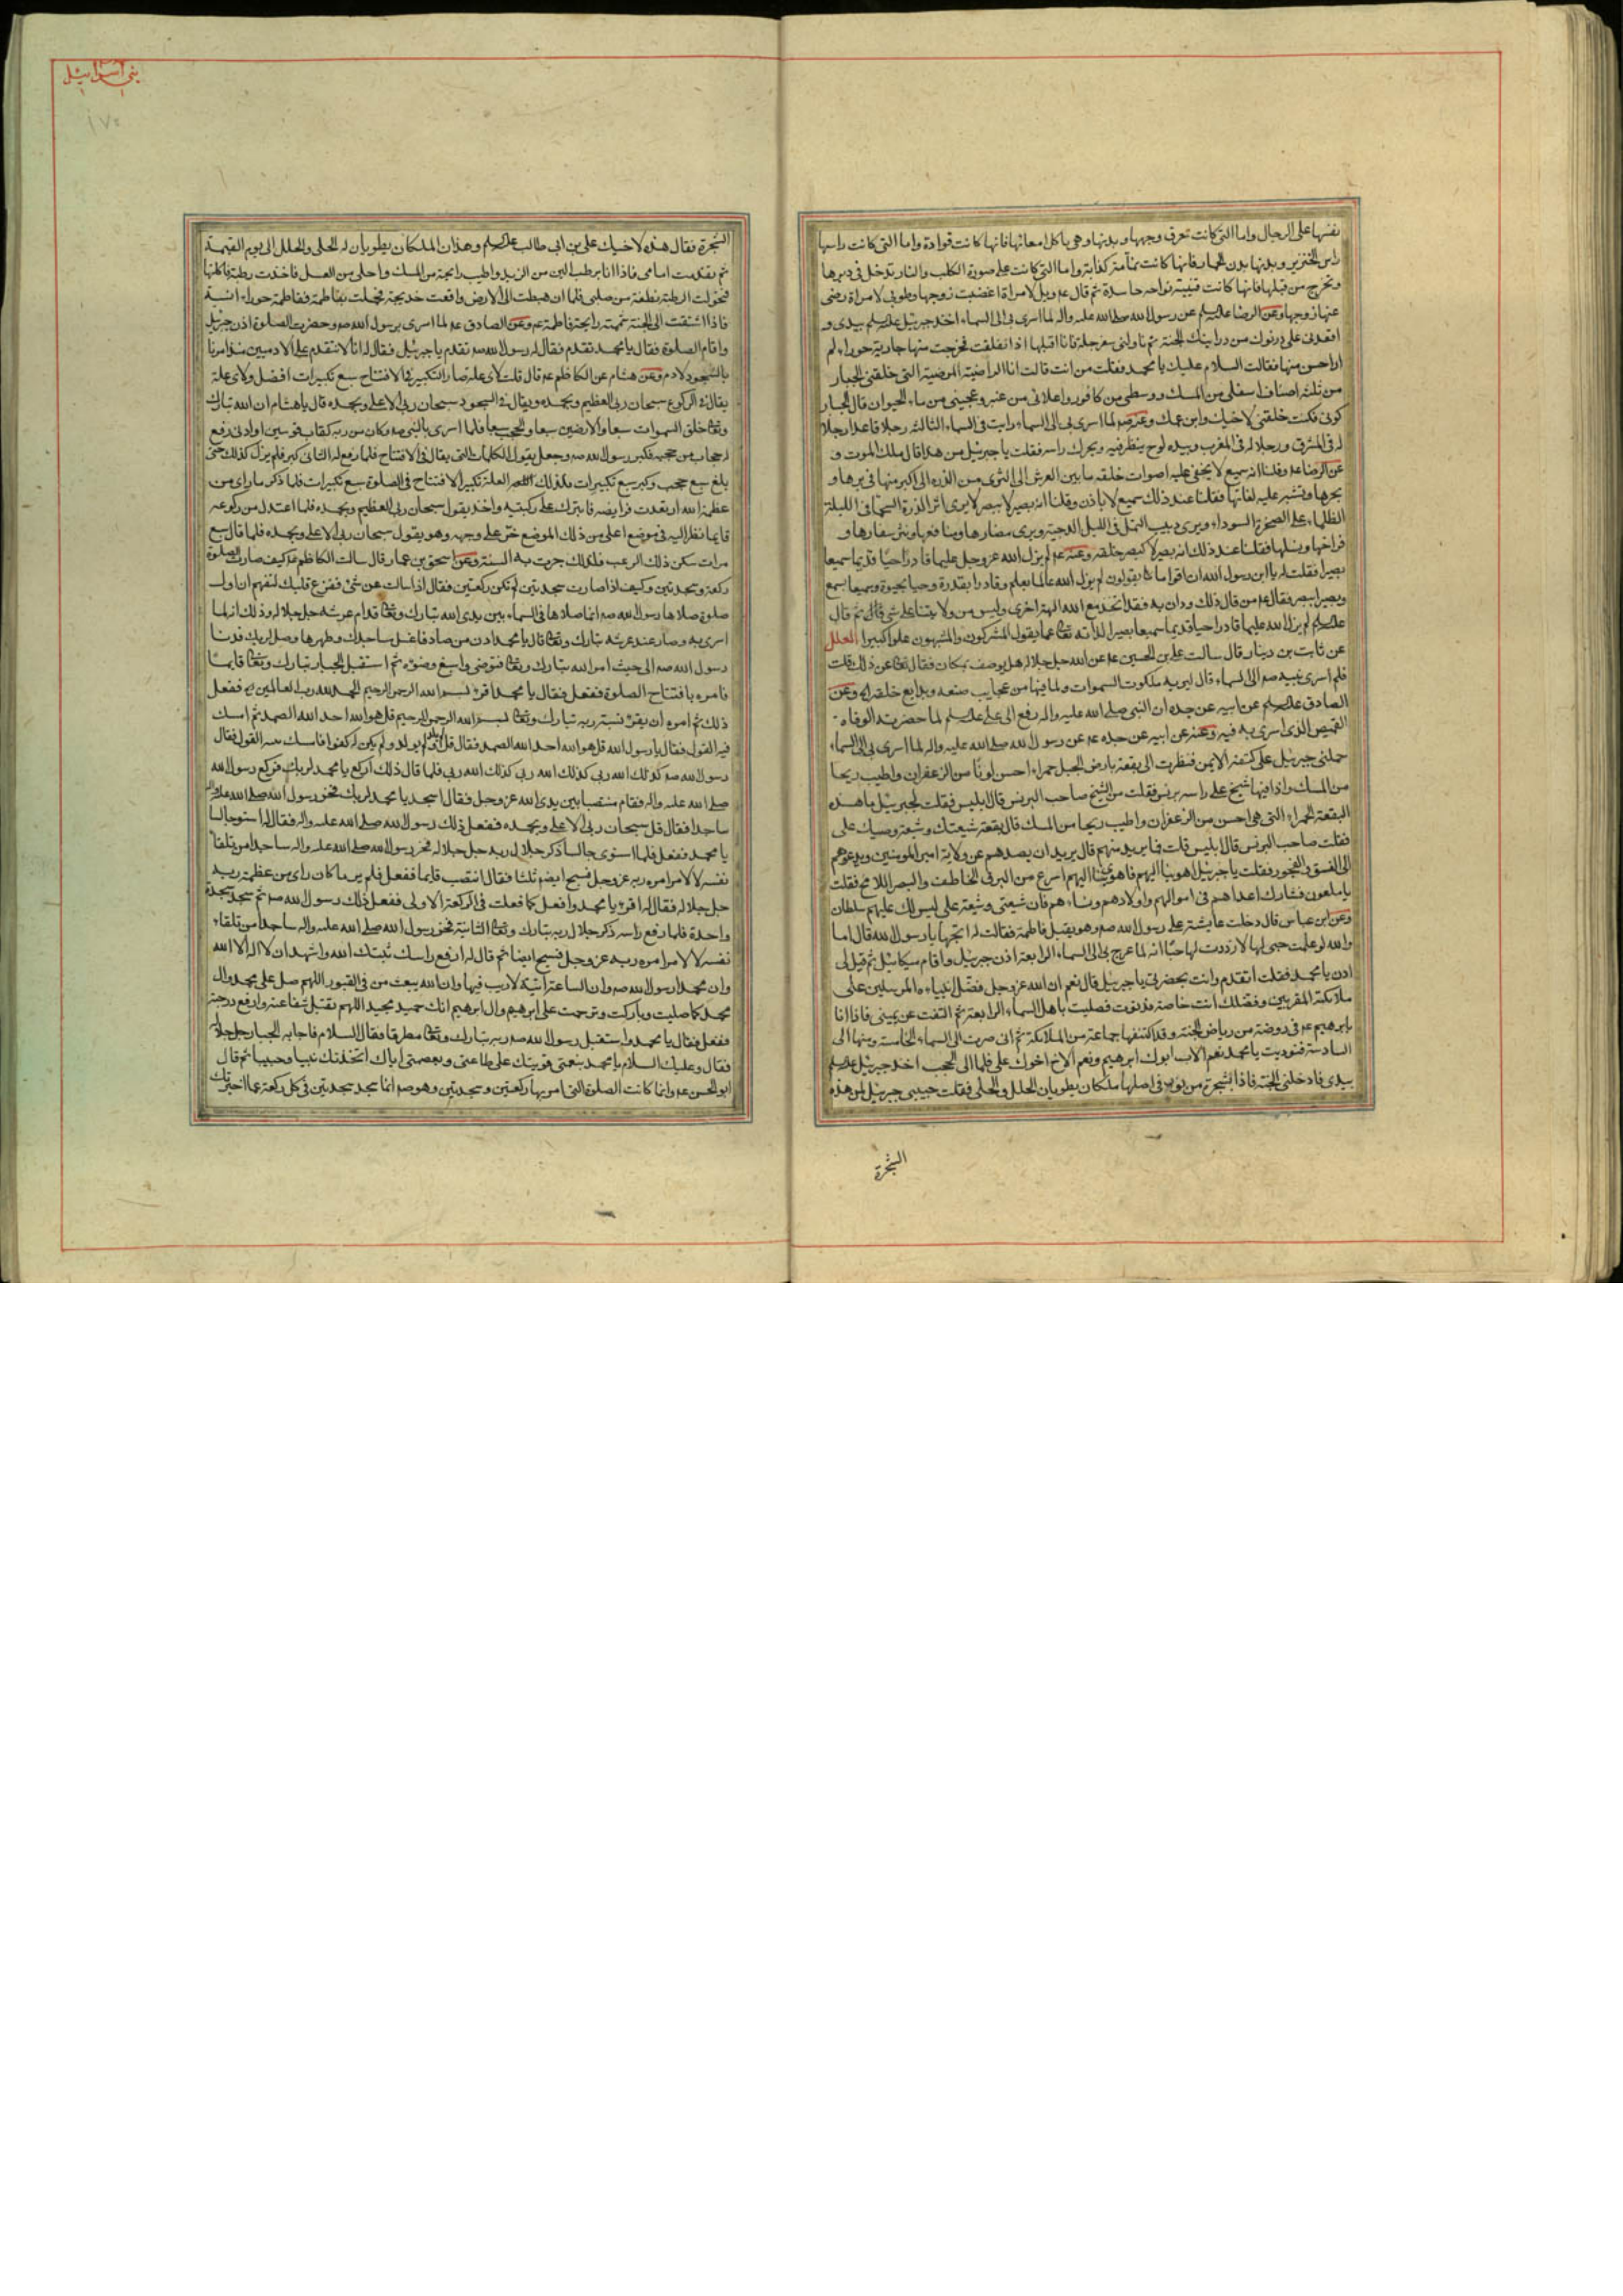 نفسها على الرجال واما التى كانت تحرق وجهها وبدنها وهى ياكل امعائها فانها كانت قوادة واما التى كانت راسها
راس الخنزير وبدنها بدن الحمار فانها كانت نمامة كذابة واما التى كانت على صورة الكلب والنار تدخل فى دبرها
وتخرج من فيها فانها كانت قينة نواحه حاسدة ثم قال عم ويل لامراة اغضبت زوجها وطوبى لامراة رضى
عنها زوجها وعن الرضا عليه السلم عن رسول الله صلى الله عليه واله لما اسرى بى الى السماء اخذ جبرئيل عليه السلم بيدى و
اقعدنى على درنوك من درانيك الجنة ثم ناولنى سفرجلة فانا اقلبها اذا انفلقت فخرجت منها جارية حوراء لم
ار احسن منها فقالت السلام عليك يا محمد فقلت من انت قالت انا الراضية المرضية التى خلقنى الجبار
من ثلثه اصناف اسفلى من المسك ووسطى من كافور واعلائى من عنبر وعجينى من ماء الحيوان قال الجبار
كونى فكنت خلقنى لاخيك وابن عمك وعنه صم لما اسرى بى الى السماء رايت فى السماء الثالثه رجلا قاعدا رجلا
له فى المشرق ورجلا له فى المغرب وبيده لوح ينظر فيه ويحرك راسه فقلت يا جبرئيل من هذا قال ملك الموت و
عن الرضا عم وقلنا انه سميع لا يخفى عليه اصوات خلقه ما بين العرش الى الثرى من الذره الى اكبر منها فى برها و
بحرها وتشبه عليه لغاتها فقلنا عند ذلك سميع لا باذن وقلنا انه بصير لا ببصر لا يرى اثر الذرة السحماء فى الليلة
الظلماء على الصخرة السوداء ويرى دبيب النمل فى الليل الدجية ويرى مضارها ومنافعها واثر سفادها و
فراخها ونسلها فقلنا عند ذلك انه بصير لا كبصر خلقه وعنه عم لم يزل الله عز وجل عليما قادرا حيا قديما سميعا
بصيرا فقلت له يا ابن رسول الله ان اقواما يقولون لم يزل الله عالما بعلم وقادرا بقدرة وحيا بحيوة وسميعا بسمع
وبصيرا ببصر فقال عم من قال ذلك ودان به فقد اتخذ مع الله الهة اخرى وليس من ولايتنا على شى ثم قال
عليه السلم لم يزل الله عليما قادرا حيا قديما سميعا بصيرا لذاته تعالى عما يقول المشركون والمشبهون علوا كبيرا العلل
عن ثابت بن دينار قال سالت على بن الحسين عم عن الله جل جلاله هل يوصف بمكان فقال تعالى عن ذلك قلت
فلم اسرى نبيه صم الى السماء قال ليريه ملكوت السموات وما فيها من عجايب صنعه وبدايع خلقه وعن
الصادق عليه السلم عن ابيه عن جده ان النبى صلى الله عليه واله رفع الى على عليه السلم لما حضرته الوفاة
القميص الذى اسرى به فيه وعنه عن ابيه عن جده عم عن رسول الله صلى الله عليه واله لما اسرى بى الى السماء
حملنى جبرئيل على كتفه الايمن فنظرت الى بقعة بارض الجبل حمراء احسن لونا من الزعفران واطيب ريحا
من المسك واذا فيها شيخ على راسه برنس فقلت من الشيخ صاحب البرنس قال ابليس فقلت لجبرئيل ما هذه
البقعة الحمراء التى هى احسن من الزعفران واطيب ريحا من المسك قال بقعة شيعتك وشيعة وصيك على
فقلت صاحب البرنس قال ابليس قلت فما يريد منهم قال يريد ان يصدهم عن ولاية امير المومنين ويدعوهم
الى الفسق والفجور فقلت يا جبرئيل اهو بنا اليهم فاهوى بنا اليهم اسرع من البرق الخاطف والبصر اللامح فقلت
يا ملعون فشارك اعداهم فى اموالهم واولادهم ونساءهم فان شيعتى وشيعة على ليس لك عليهم سلطان
وعن ابن عباس قال دخلت عايشة على رسول الله صم وهو يقبل فاطمة فقالت له اتحبها يا رسول الله قال اما
والله لو علمت حبى لها لازددت لها حبا انه لما عرج بى الى السماء الرابعة اذن جبرئيل واقام ميكائيل ثم قيل لى
ادن يا محمد فقلت اتقدم وانت بحضرتى يا جبرئيل قال نعم ان الله عز وجل فضل انبياءه المرسلين على
ملائكته المقربين وفضلك انت خاصة فدنوت فصليت باهل السماء الرابعة ثم التفت عن يمينى فاذا انا
بابرهيم عم فى روضة من رياض الجنة وقد اكتنفها جماعة من الملائكة ثم انى صرت الى السماء الخامسة ومنها الى
السادسة فنوديت يا محمد نعم الاب ابوك ابرهيم ونعم الاخ اخوك على فلما الى الحجب اخذ جبرئيل عليه السلم
بيدى فادخلنى الجنة فاذا بشجرة من نور فى اصلها ملكان يطويان الحلل والحلى فقلت حبيبى جبرئيل لمن هذه
الشجرة
بنى اسرائيل
١٧٥
الشجرة فقال هذه لاخيك على بن ابى طالب عليه السلم وهذان الملكان يطويان له الحلى والحلل الى يوم القيمة
ثم تقدمت امامى فاذا انا برطب الين من الزبد واطيب رايحة من المسك واحلى من العسل فاخذت رطبة فاكلتها
فتحولت الرطبة نطفة من صلبى فلما ان هبطت الى الارض واقعت خديجة فحملت بفاطمة ففاطمة حوراء انسية
فاذا اشتقت الى الجنة شممت رايحة فاطمة عم وعن الصادق عم لما اسرى برسول الله صم وحضرت الصلوة اذن جبرئيل
واقام الصلوة فقال يا محمد تقدم فقال له رسول الله صم تقدم يا جبرئيل فقال له انا لا نتقدم على الادميين منذ امرنا
بالسجود لادم وعن هشام عن الكاظم عم قال قلت لاى علة صار التكبير فى الافتتاح سبع تكبيرات افضل ولاى علة
يقال فى الركوع سبحان ربى العظيم وبحمده ويقال فى السجود سبحان ربى الاعلى وبحمده قال يا هشام ان الله تبارك
وتعالى خلق السموات سبعا والارضين سبعا والحجب سبعا فلما اسرى بالنبى صم وكان من ربه كقاب قوسين او ادنى رفع
له حجاب من حجبه فكبر رسول الله صم وجعل يقول الكلمات التى يقال فى الافتتاح فلما رفع له الثانى كبر فلم يزل كذلك حتى
بلغ سبع حجب وكبر سبع تكبيرات فلذلك العلة تكبير الافتتاح فى الصلوة سبع تكبيرات فلما ذكر ما راى من
عظمة الله ارتعدت فرايصه فابترك على ركبتيه واخذ يقول سبحان ربى العظيم وبحمده فلما اعتدل من ركوعه
قايما نظر اليه فى موضع اعلى من ذلك الموضع خر على وجهه وهو يقول سبحان ربى الاعلى وبحمده فلما قال سبع
مرات سكن ذلك الرعب فلذلك جرت به السنة وعن اسحق بن عمار قال سالت الكاظم عم كيف صارت الصلوة
ركعة وسجدتين وكيف اذا صارت سجدتين لم تكن ركعتين فقال اذا سالت عن شئ ففرغ قلبك لتفهم ان اول
صلوة صلاها رسول الله صم انما صلاها فى السماء بين يدى الله تبارك وتعالى قدام عرشه جل جلاله وذلك انه لما
اسرى به وصار عند عرشه تبارك وتعالى قال يا محمد ادن من صاد فاغسل مساجدك وطهرها وصل لربك فدنا
رسول الله صم الى حيث امر الله تبارك وتعالى فتوضى واسبغ وضوءه ثم استقبل الجبار تبارك وتعالى قايما
فامره بافتتاح الصلوة ففعل فقال يا محمد اقرء بسم الله الرحمن الرحيم الحمد لله رب العالمين ففعل
ذلك ثم امره ان يقرء نسبة ربه تبارك وتعالى بسم الله الرحمن الرحيم قل هو الله احد الله الصمد ثم امسك
فيه القول فقال يا رسول الله قل هو الله احد الله الصمد فقال قل لم يلد ولم يولد ولم يكن له كفوا فامسك القول فقال
رسول الله صم كذلك الله ربى كذلك الله ربى كذلك الله ربى فلما قال ذلك اركع يا محمد لربك فركع رسول الله
صلى الله عليه واله فقام منتصبا بين يدى الله عز وجل فقال اسجد يا محمد لربك فخر رسول الله صلى الله عليه واله
ساجدا فقال قل سبحان ربى الاعلى وبحمده ففعل ذلك رسول الله صلى الله عليه واله فقال له استو جالسا
يا محمد ففعل فلما استوى جالسا ذكر جلال ربه جل جلاله فخر رسول الله صلى الله عليه واله ساجدا من تلقاء
نفسه لا لامر امره ربه عز وجل فسبح ايضا ثلثا فقال انتصب قايما ففعل فلم ير ما كان راى من عظمة ربه
جل جلاله فقال له اقرء يا محمد وافعل كما فعلت فى الركعة الاولى ففعل ذلك رسول الله صم ثم سجد سجدة
واحدة فلما رفع راسه ذكر جلال ربه تبارك وتعالى الثانية فخر رسول الله صلى الله عليه واله ساجدا من تلقاء
نفسه لا لامر امره ربه عز وجل فسبح ايضا ثم قال له ارفع راسك ثبتك الله واشهد ان لا اله الا الله
وان محمدا رسول الله صم وان الساعة اتية لا ريب فيها وان الله يبعث من فى القبور اللهم صل على محمد وال
محمد كما صليت وباركت وترحمت على ابرهيم وال ابرهيم انك حميد مجيد اللهم تقبل شفاعته وارفع درجته
ففعل فقال يا محمد واستقبل رسول الله صم ربه تبارك وتعالى مطرقا فقال السلام فاجابه الجبار جل جلاله
فقال وعليك السلام يا محمد بنعمتى قويتك على طاعتى وبعصمتى اياك اتخذتك نبيا وحبيبا ثم قال
ابو الحسن عم وانما كانت الصلوة التى امر بها ركعتين وسجدتين وهو صم انما سجد سجدتين فى كل ركعة عما اخبرتك